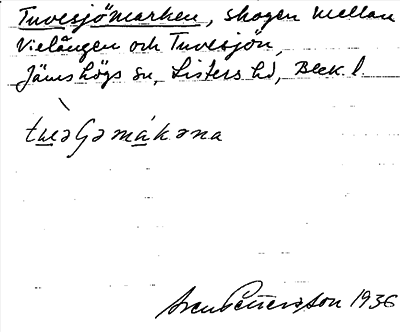 Tuvesjömarken, skogen mellan
Vielången och Tuvesjön,
Jämshögs sn, Listers hd, Blek. l.
tuəGəmákəna
Sven Pettersson 1936